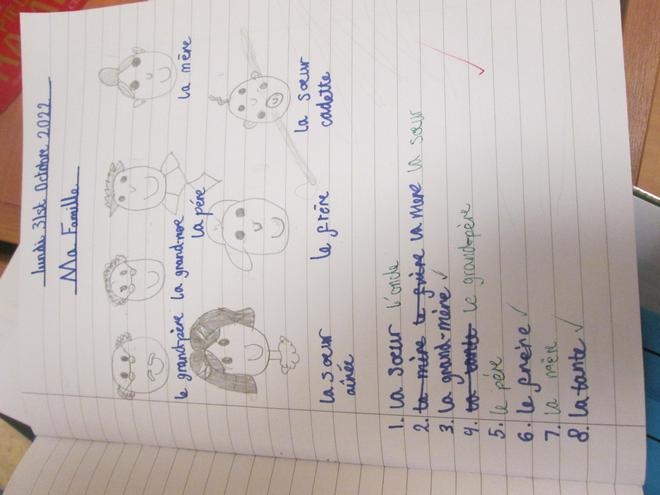 lundi 31st Octobre 2022
Ma Famille
le grand-père la grand-mère
la père
la mère
la soeur
aînée
le frère
la soeur
cadette
1. la soeur l'oncle
2. la mère le frère la mere la soeur
3. la grand-mère ✓
4. la tante le grand-père
5. le père
6. le frère ✓
7. la mère
8. la tante ✓